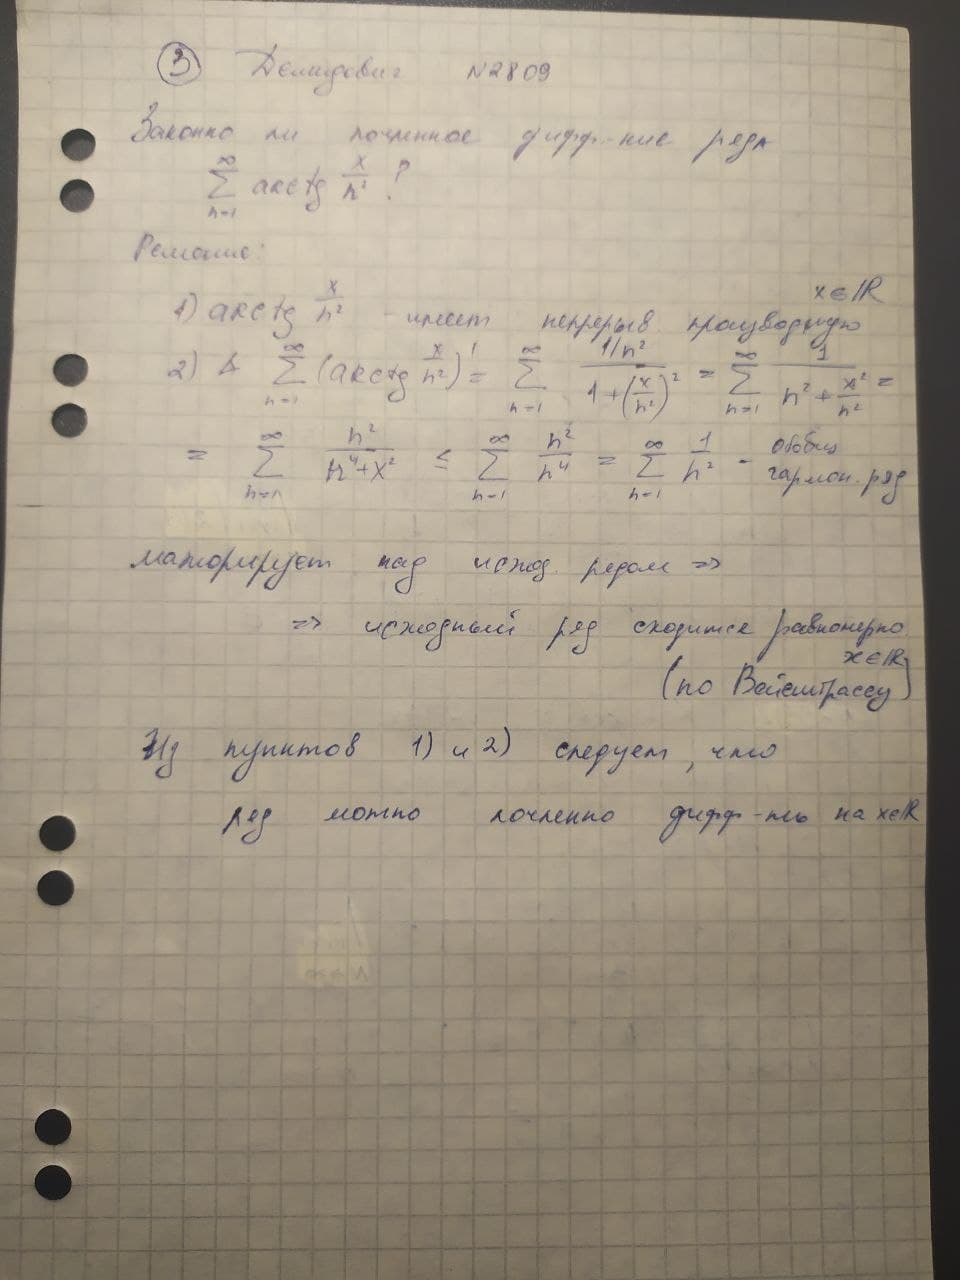 3 Демидович N2809
Законно ли почленное дифф-ние ряда
∞ ∑ n=1 arctg x/n² ?
Решение:
1) arctg x/n² - имеет непрерыв производную x∈ℝ
2) ∆ ∞ ∑ n=1 (arctg x/n²)' = ∞ ∑ n=1 (1/n²)/(1+(x/n²)²) = ∞ ∑ n=1 1/(n² + x²/n²) =
= ∞ ∑ n=1 n²/(n⁴+x²) ≤ ∞ ∑ n=1 n²/n⁴ = ∞ ∑ n=1 1/n² - обобщ гармон. ряд
мажорирует над исход. рядом =>
=> исходный ряд сходится равномерно x∈ℝ
(по Вейештрассу)
Из пунктов 1) и 2) следует, что
ряд можно почленно дифф-ть на x∈ℝ